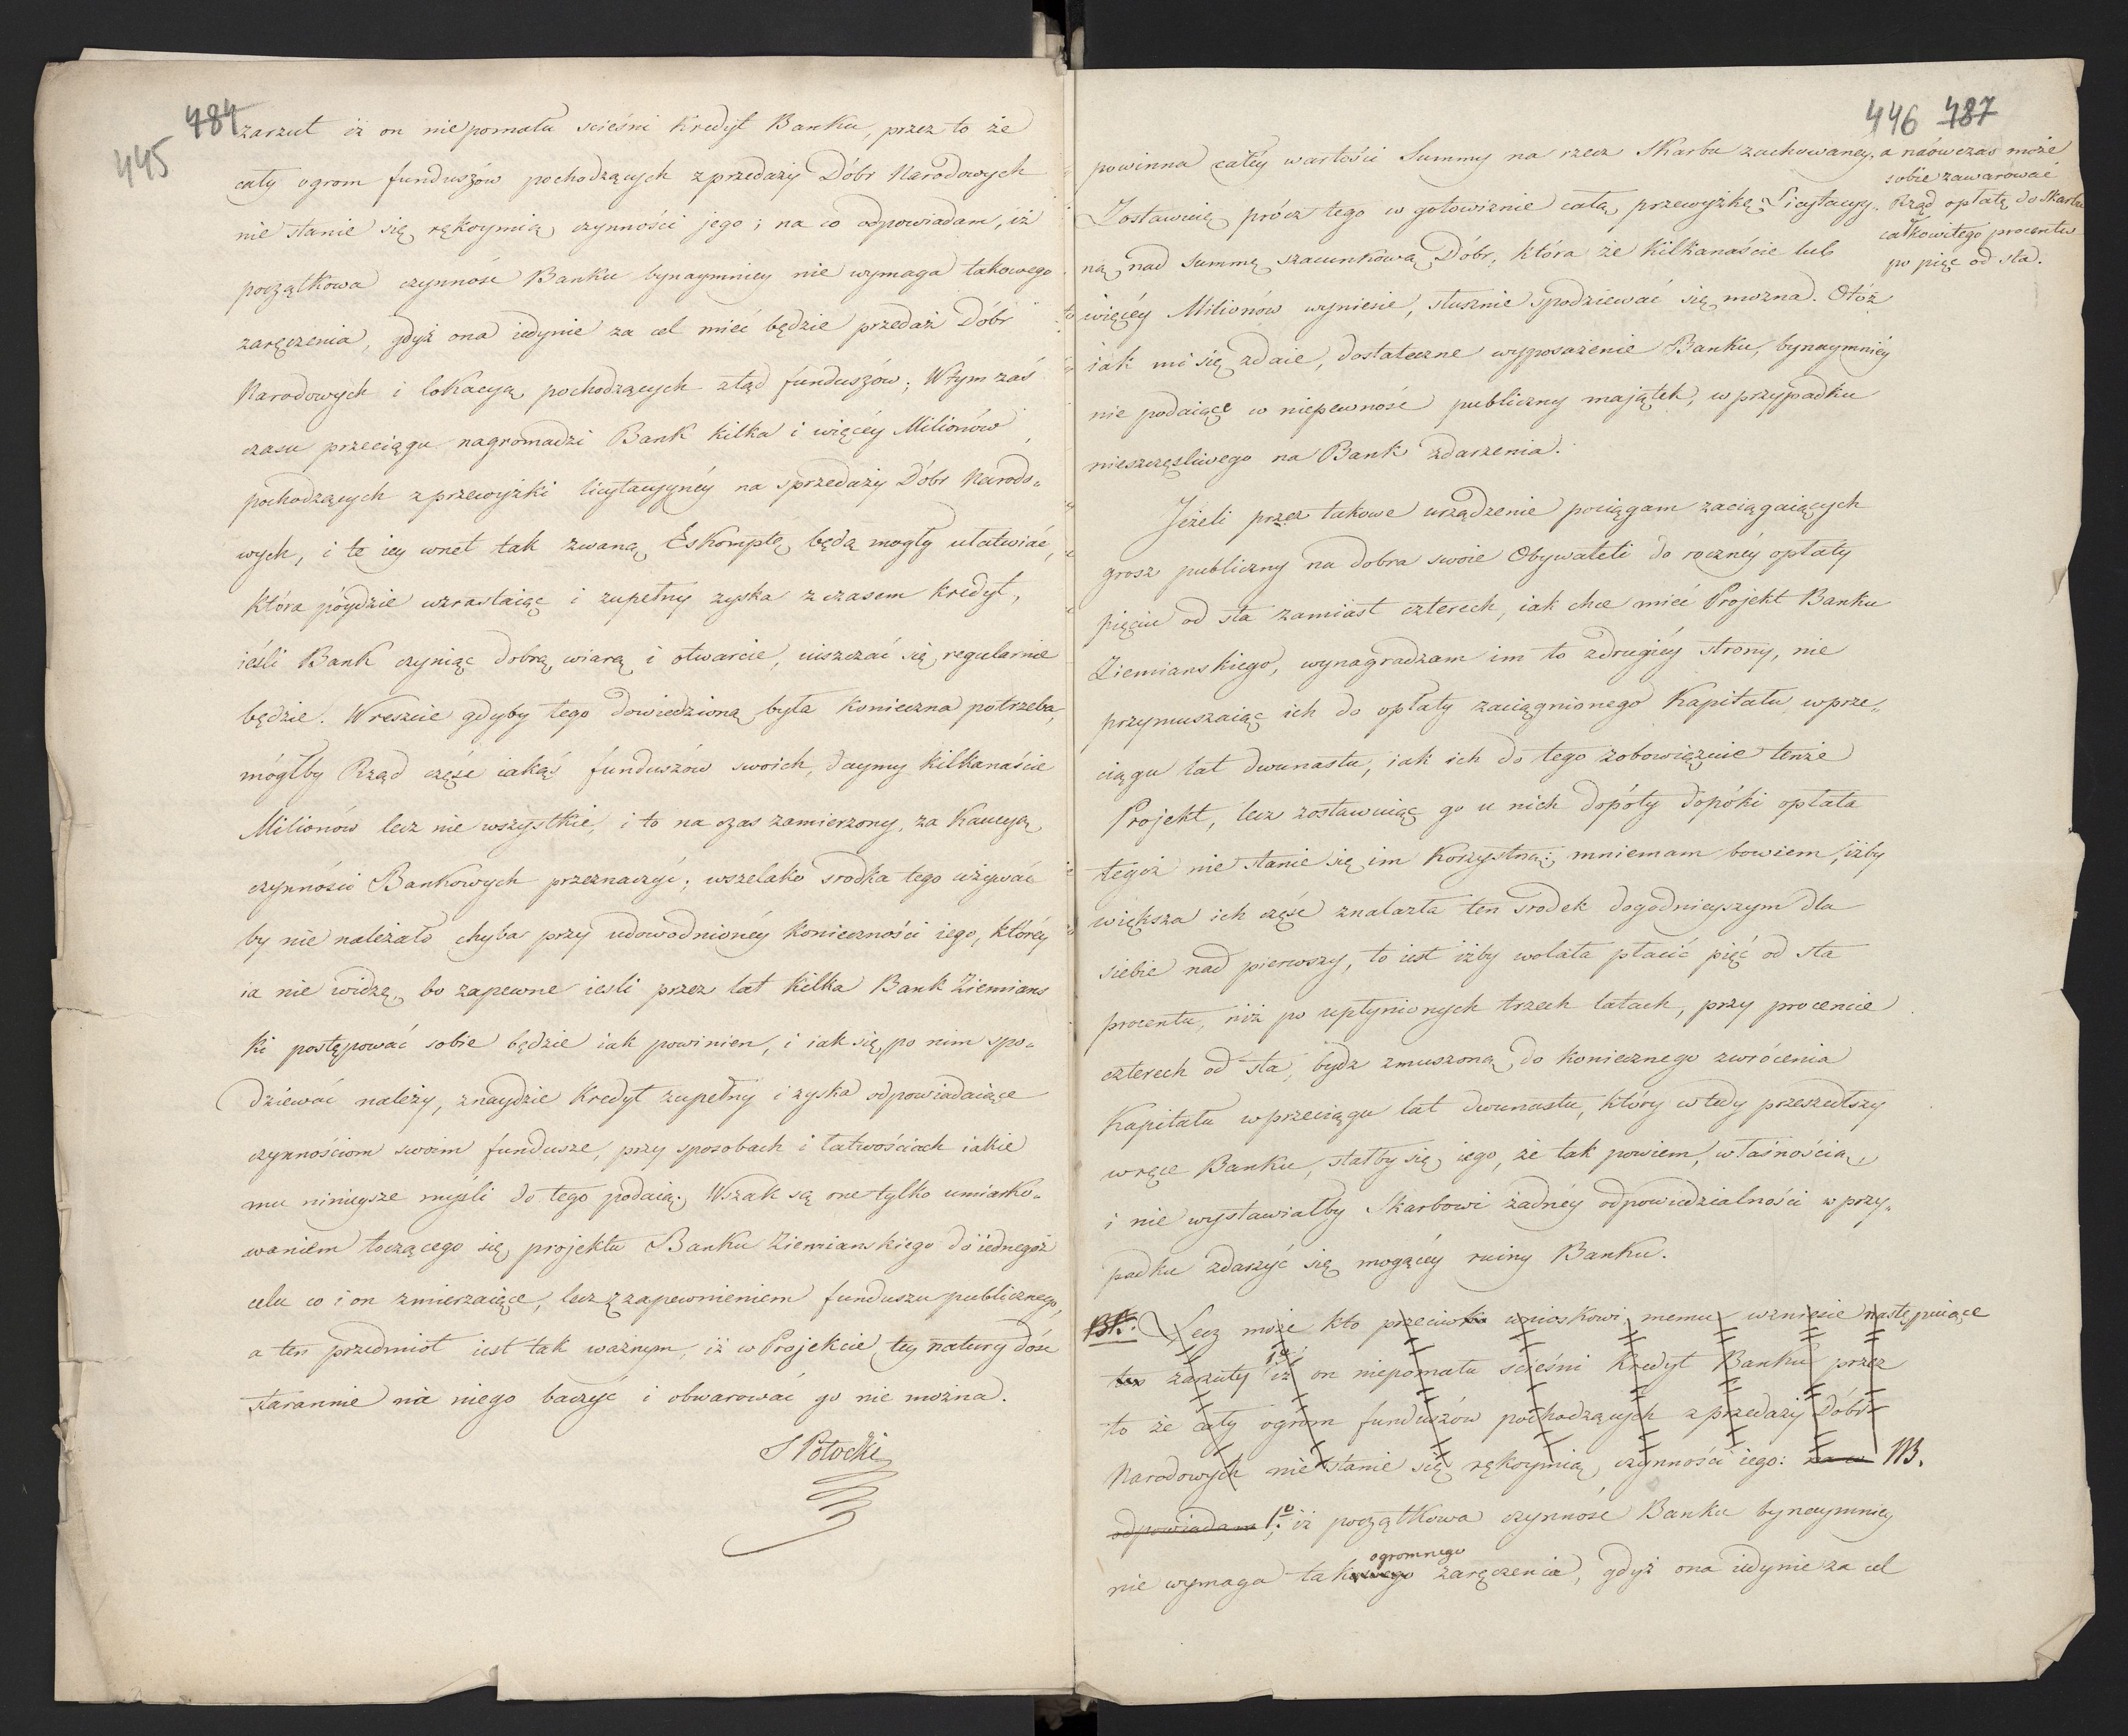 484
445
zarzut iż on niepomału scieśni Kredyt Banku, przez to że
cały ogrom funduszów pochodzących zprzedaży Dóbr Narodowych
nie stanie się rękoymią czynności jego; na co odpowiadam, iż
początkowa czynność Banku bynaymniey nie wymaga takowego
zaręczenia, gdyż ona iedynie za cel mieć będzie przedaż Dóbr
Narodowych i lokacyą pochodzących ztąd funduszów; Wtym zaś
czasu przeciągu nagromadzi Bank kilka i więcéy Milionów,
pochodzących zprzewyżki licytacyynéy na sprzedaży Dóbr Narodo„
wych, i te iey wnet tak zwaną Eskomptę będą mogły ułatwiać,
która póydzie wzrastaiąc i zupełny zyska zczasem kredyt,
ieśli Bank czyniąc dobrą wiarą i otwarcie, uiszczać się regularnie
będzie. Wreszcie gdyby tego dowiedzioną była konieczna potrzeba,
mógłby Rząd część iakąś funduszów swoich, daymy kilkanaście
Milionów lecz nie wszystkie, i to na czas zamierzony, za Kaucyą
czynności Bankowych przeznaczyć; wszelako srodka tego używać
by nie należało chyba przy udowodnionéy konieczności iego, któréy
ia nie widzę, bo zapewne iesli przez lat kilka Bank Ziemians
ki postępować sobie będzie iak powinien, i iak się po nim spo„
dziewać należy, znaydzie Kredyt zupełny i zyska odpowiadaiące
czynnościom swoim fundusze, przy sposobach i łatwościach iakie
mu ninieysze myśli do tego podaią. Wszak są one tylko umiarko„
waniem toczącego się projektu Banku Ziemianskiego do iednegoż
celu co i on zmierzaiące, lecz z zapewnieniem funduszu publicznego,
a ten przedmiot iest tak ważnym, iż w Projekcie tey natury dość
starannie na niego baczyć i obwarować go nie można.
S Potocki
446 487
powinna całéy wartości Summy na rzecz Skarbu zachowaney, a naówczas może
sobie zawarować
Rząd opłatę do Skarbu
całkowitego procentu
po pięć od sta.
Zostawuię prócz tego w gotowiznie całą przewyżkę Licytacyy„
ną nad Summę szacunkową Dóbr, która że kilkanaście lub
więcéy Milionów wyniesie, słusznie spodziewać się można. Otóż
iak mi się zdaie, dostateczne wyposażenie Banku, bynaymniéy
nie podaiące w niepewność publiczny majątek, w przypadku
nieszczęśliwego na Bank zdarzenia.
Jeżeli przez takowe urządzenie pociągam zaciągaiących
grosz publiczny na dobra swoie Obywateli do rocznéy opłaty
pięciu od sta zamiast czterech, iak chce mieć Projekt Banku
Ziemianskiego, wynagradzam im to zdrugiéy strony, nie
przymuszaiąc ich do opłaty zaciągnionego Kapitału wprze„
ciągu lat dwunastu, iak ich do tego zobowięzuie tenże
Projekt, lecz zostawuiąc go u nich dopóty dopóki opłata
tegoż nie stanie się im Korzystną; mniemam bowiem, iżby
większa ich część znalazła ten srodek dogodnieyszym dla
siebie nad pierwszy, to iest iżby wolała płacić pięć od sta
procentu, niż po upłynionych trzech latach, przy procencie
czterech od sta, bydz zmuszoną do koniecznego zwrócenia
Kapitału wprzeciągu lat dwunastu, który wtedy przeszedłszy
wręce Banku, stałby się iego, że tak powiem, własnością,
i nie wystawiałby Skarbowi żadnéy odpowiedzialności w przy„
padku zdarzyć się mogącéy ruiny Banku.
Lecz może kto przeciwko wnioskowi memu wzniesie następuiące
ten zarzuty 1º iż on niepomału scieśni Kredyt Banku przez
to że cały ogrom funduszów pochodzących zprzedaży Dóbr
Narodowych nie stanie się rękoymią czynności iego: na co
odpowiadam 1º, iż początkowa czynność Banku bynaymniey
ogromnego
nie wymaga takowego zaręczenia, gdyż ona iedynie za cel